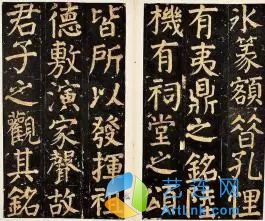 冰篆額昔孔悝
有夷鼎之銘陸
機有祠堂之頌
皆所以發揮祖
德敷演家聲故
君子之觀其銘